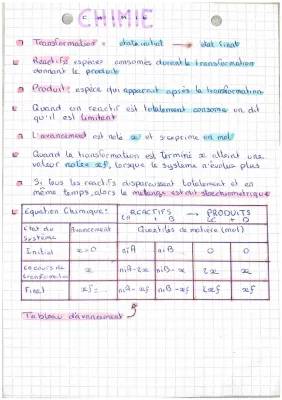 CHIMIE
Transformation : état initial → état final
Réactifs : espèces consommés durant la transformation
donnant le produit
Produit : espèce qui apparait après la transformation
Quand un réactif est totalement consommé on dit
qu'il est limitant
L'avancement est noté x et s'exprime en mol
Quand la transformation est terminé x atteint une
valeur notée xf, lorsque le système n'évolue plus
Si tous les réactifs disparaissent totalement et en
même temps, alors le mélange est dit stœchiométrique
Equation Chimique : REACTIFS → PRODUITS
A + B C + D
Etat du système Avancement Quantités de matière (mol)
Initial x=0 niA niB 0 0
En cours de transformation x niA-2x niB-x 2x x
Final xf=... niA-xf niB-xf 2xf xf
Tableau d'avancement